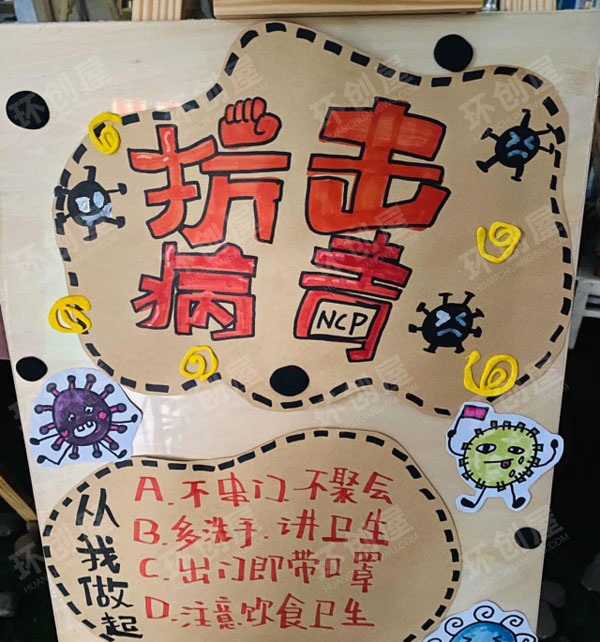 抗击
病毒
NCP
从我做起
A.不串门不聚会
B.多洗手.讲卫生
C.出门即带口罩
D.注意饮食卫生
环创屋
HUANCHUANGWU.COM